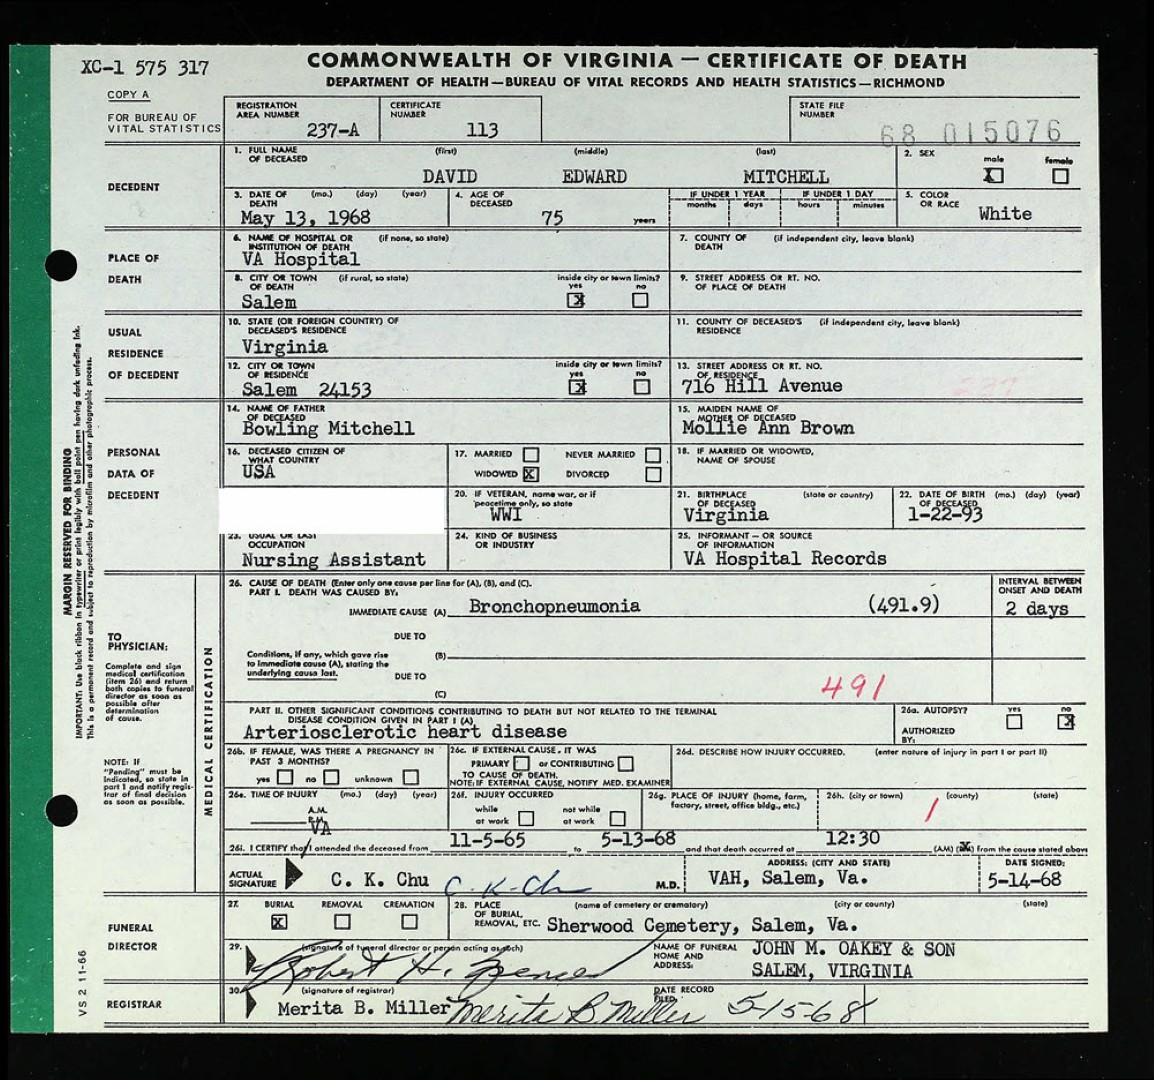 XC-1 575 317
COMMONWEALTH OF VIRGINIA — CERTIFICATE OF DEATH
DEPARTMENT OF HEALTH—BUREAU OF VITAL RECORDS AND HEALTH STATISTICS—RICHMOND
COPY A
FOR BUREAU OF VITAL STATISTICS
REGISTRATION AREA NUMBER 237-A
CERTIFICATE NUMBER 113
STATE FILE NUMBER 68 015076
DECEDENT
1. FULL NAME OF DECEASED (first) (middle) (last)
DAVID EDWARD MITCHELL
2. SEX male X female
3. DATE OF DEATH (mo.) (day) (year)
May 13, 1968
4. AGE OF DECEASED 75 years
IF UNDER 1 YEAR months days
IF UNDER 1 DAY hours minutes
5. COLOR OR RACE White
PLACE OF DEATH
6. NAME OF HOSPITAL OR INSTITUTION OF DEATH (if none, so state)
VA Hospital
7. COUNTY OF DEATH (if independent city, leave blank)
8. CITY OR TOWN OF DEATH (if rural, so state)
Salem
inside city or town limits? yes X no
9. STREET ADDRESS OR RT. NO. OF PLACE OF DEATH
USUAL RESIDENCE OF DECEDENT
10. STATE (OR FOREIGN COUNTRY) OF DECEASED'S RESIDENCE
Virginia
11. COUNTY OF DECEASED'S RESIDENCE (if independent city, leave blank)
12. CITY OR TOWN OF RESIDENCE
Salem 24153
inside city or town limits? yes X no
13. STREET ADDRESS OR RT. NO. OF RESIDENCE
716 Hill Avenue
237
PERSONAL DATA OF DECEDENT
14. NAME OF FATHER OF DECEASED
Bowling Mitchell
15. MAIDEN NAME OF MOTHER OF DECEASED
Mollie Ann Brown
16. DECEASED CITIZEN OF WHAT COUNTRY
USA
17. MARRIED NEVER MARRIED
WIDOWED X DIVORCED
18. IF MARRIED OR WIDOWED, NAME OF SPOUSE
20. IF VETERAN, name war, or if peacetime only, so state
WWI
21. BIRTHPLACE OF DECEASED (state or country)
Virginia
22. DATE OF BIRTH OF DECEASED (mo.) (day) (year)
1-22-93
23. USUAL OR LAST OCCUPATION
Nursing Assistant
24. KIND OF BUSINESS OR INDUSTRY
25. INFORMANT—OR SOURCE OF INFORMATION
VA Hospital Records
MARGIN RESERVED FOR BINDING
IMPORTANT: Use black ribbon in typewriter or print legibly with ball point pen having dark unfading ink.
This is a permanent record and subject to reproduction by microfilm and other photographic process.
TO PHYSICIAN:
Complete and sign medical certification (item 26) and return both copies to funeral director as soon as possible after determination of cause.
NOTE: IF "Pending" must be indicated, so state in part I and notify registrar of final decision as soon as possible.
MEDICAL CERTIFICATION
26. CAUSE OF DEATH (Enter only one cause per line for (A), (B), and (C).
PART I. DEATH WAS CAUSED BY:
INTERVAL BETWEEN ONSET AND DEATH
IMMEDIATE CAUSE (A) Bronchopneumonia (491.9) 2 days
DUE TO
Conditions, if any, which gave rise to immediate cause (A), stating the underlying cause last.
(B)
DUE TO
(C)
491
PART II. OTHER SIGNIFICANT CONDITIONS CONTRIBUTING TO DEATH BUT NOT RELATED TO THE TERMINAL DISEASE CONDITION GIVEN IN PART I (A)
Arteriosclerotic heart disease
26a. AUTOPSY? yes no X
AUTHORIZED BY:
26b. IF FEMALE, WAS THERE A PREGNANCY IN PAST 3 MONTHS?
yes no unknown
26c. IF EXTERNAL CAUSE, IT WAS
PRIMARY or CONTRIBUTING
TO CAUSE OF DEATH.
NOTE: IF EXTERNAL CAUSE, NOTIFY MED. EXAMINER
26d. DESCRIBE HOW INJURY OCCURRED. (enter nature of injury in part I or part II)
26e. TIME OF INJURY (mo.) (day) (year)
A.M.
P.M.
VA
26f. INJURY OCCURRED
while at work not while at work
26g. PLACE OF INJURY (home, farm, factory, street, office bldg., etc.)
26h. (city or town) (county) (state)
1
26i. I CERTIFY that I attended the deceased from 11-5-65 to 5-13-68 and that death occurred at 12:30 (AM) (PM) from the cause stated above
ACTUAL SIGNATURE C. K. Chu C-K-Chu M.D.
ADDRESS: (CITY AND STATE)
VAH, Salem, Va.
DATE SIGNED:
5-14-68
FUNERAL DIRECTOR
27. BURIAL X REMOVAL CREMATION
28. PLACE OF BURIAL, REMOVAL, ETC. (name of cemetery or crematory) (city or county) (state)
Sherwood Cemetery, Salem, Va.
29. (signature of funeral director or person acting as such)
Robert H. Spencer
NAME OF FUNERAL HOME AND ADDRESS:
JOHN M. OAKEY & SON
SALEM, VIRGINIA
REGISTRAR
30. (signature of registrar)
Merita B. Miller Merita B Miller
DATE RECORD FILED: 5-15-68
VS 2 11-66